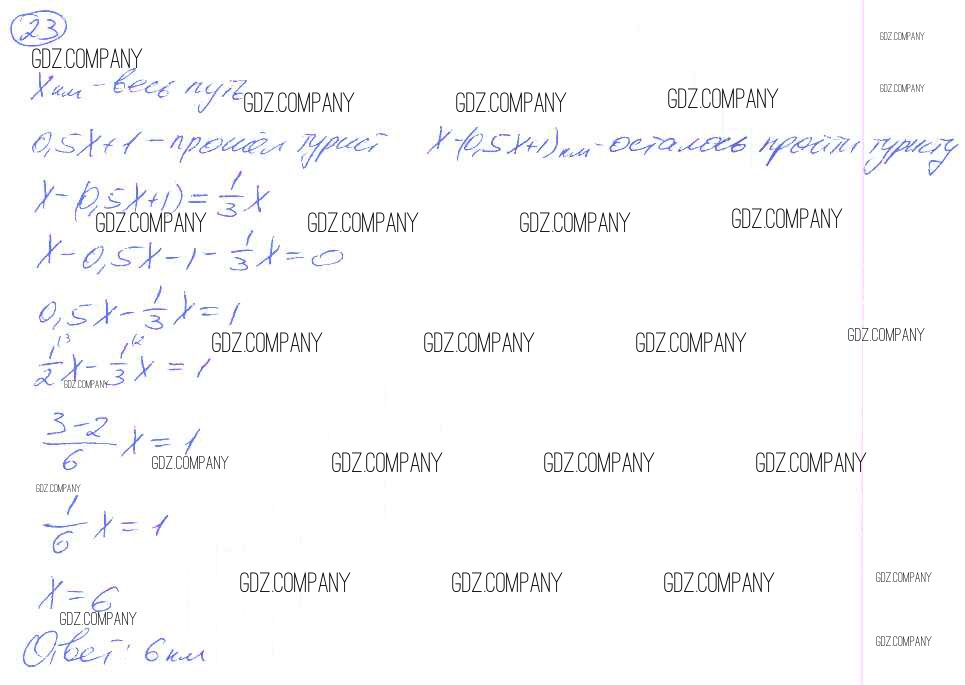 23
GDZ.COMPANY
GDZ.COMPANY
X км - весь путь
GDZ.COMPANY GDZ.COMPANY GDZ.COMPANY GDZ.COMPANY
0,5X+1 - прошёл турист X-(0,5X+1) км - осталось пройти туристу
X-(0,5X+1)=1/3X
GDZ.COMPANY GDZ.COMPANY GDZ.COMPANY GDZ.COMPANY
X-0,5X-1-1/3X=0
0,5X-1/3X=1
GDZ.COMPANY GDZ.COMPANY GDZ.COMPANY GDZ.COMPANY
1/2 \3 X - 1/3 \2 X = 1
GDZ.COMPANY
(3-2)/6 X = 1
GDZ.COMPANY GDZ.COMPANY GDZ.COMPANY GDZ.COMPANY
GDZ.COMPANY
1/6 X = 1
X=6
GDZ.COMPANY GDZ.COMPANY GDZ.COMPANY GDZ.COMPANY
GDZ.COMPANY
Ответ: 6 км
GDZ.COMPANY